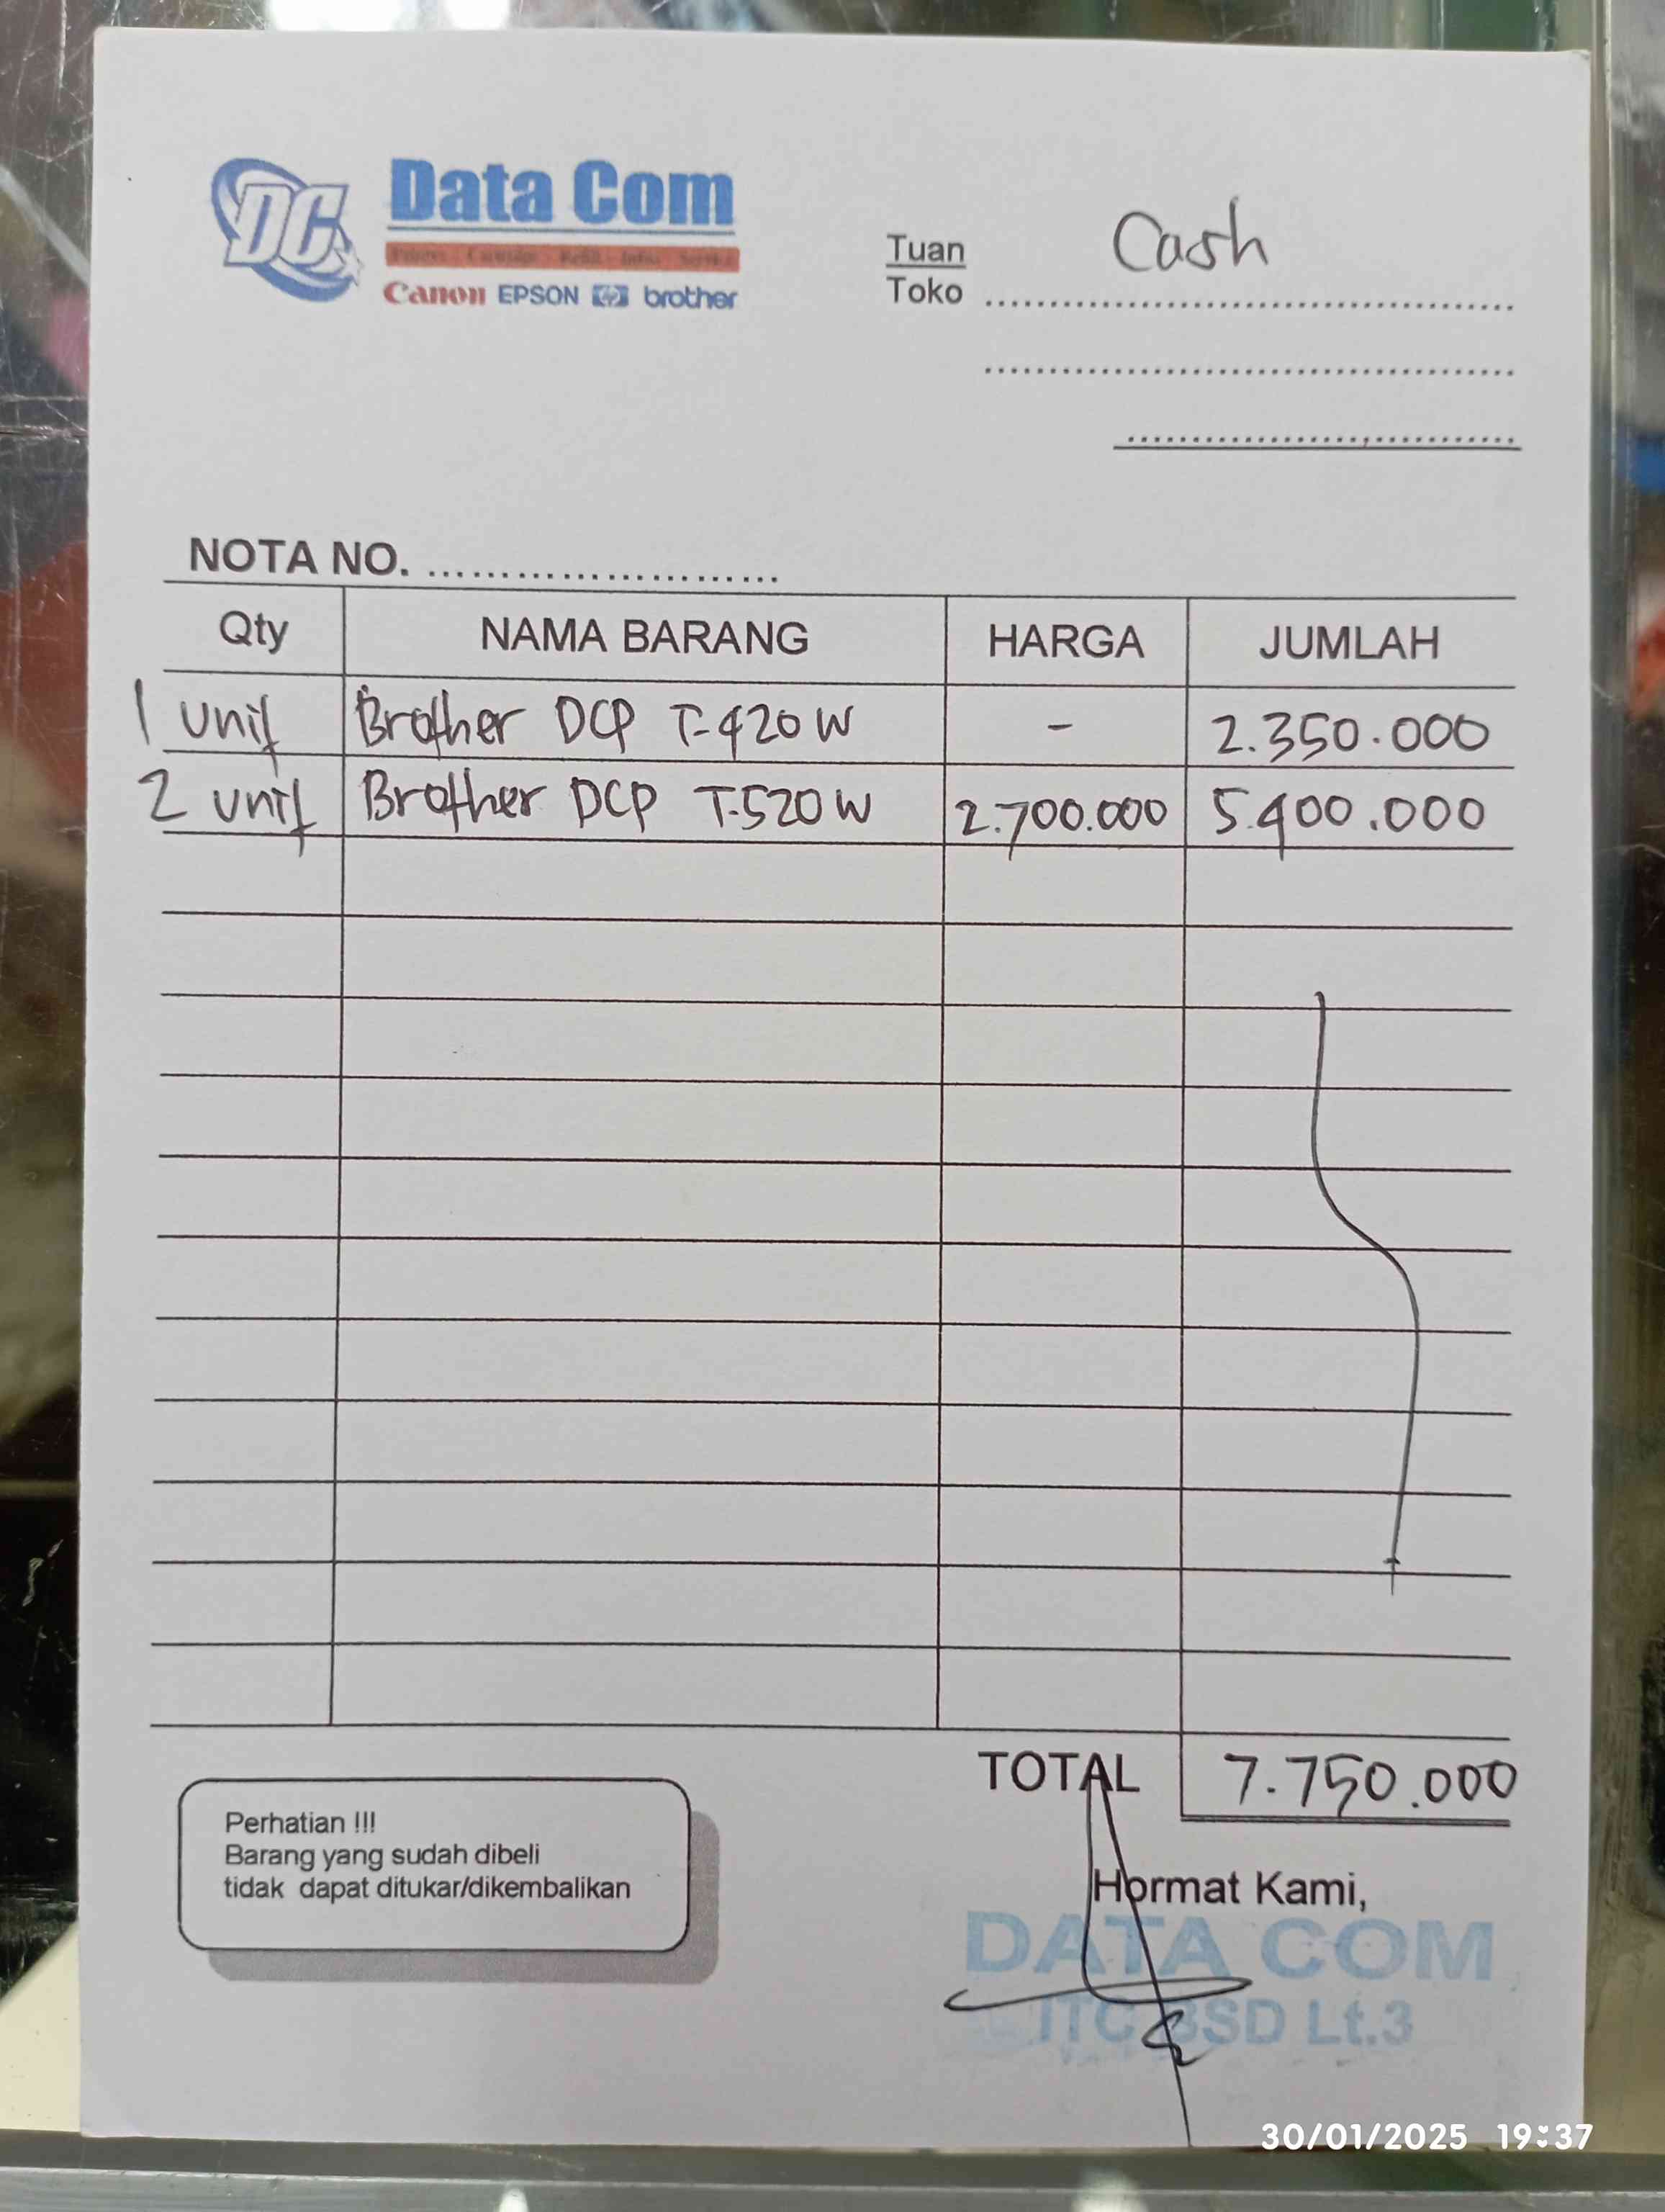 DC
Data Com
Printer Cartridge Refill Infus Service
Canon EPSON hp brother
Tuan
Toko
Cash
NOTA NO.
Qty NAMA BARANG HARGA JUMLAH
1 unit Brother DCP T-420W - 2.350.000
2 unit Brother DCP T-520W 2.700.000 5.400.000
TOTAL 7.750.000
Perhatian !!!
Barang yang sudah dibeli
tidak dapat ditukar/dikembalikan
Hormat Kami,
DATA COM
ITC BSD Lt.3
30/01/2025 19:37